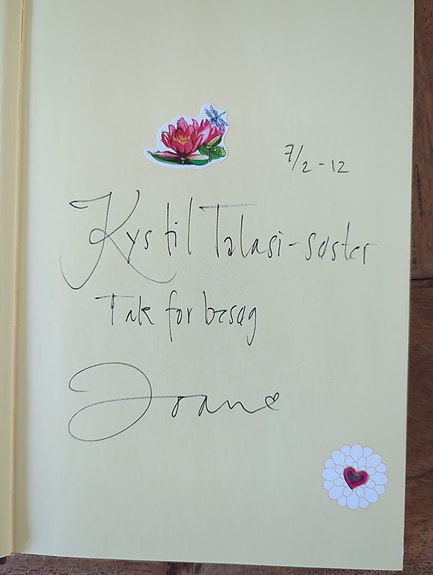 7/2-12
Kys til Talasi-søster
Tak for besøg
Joane